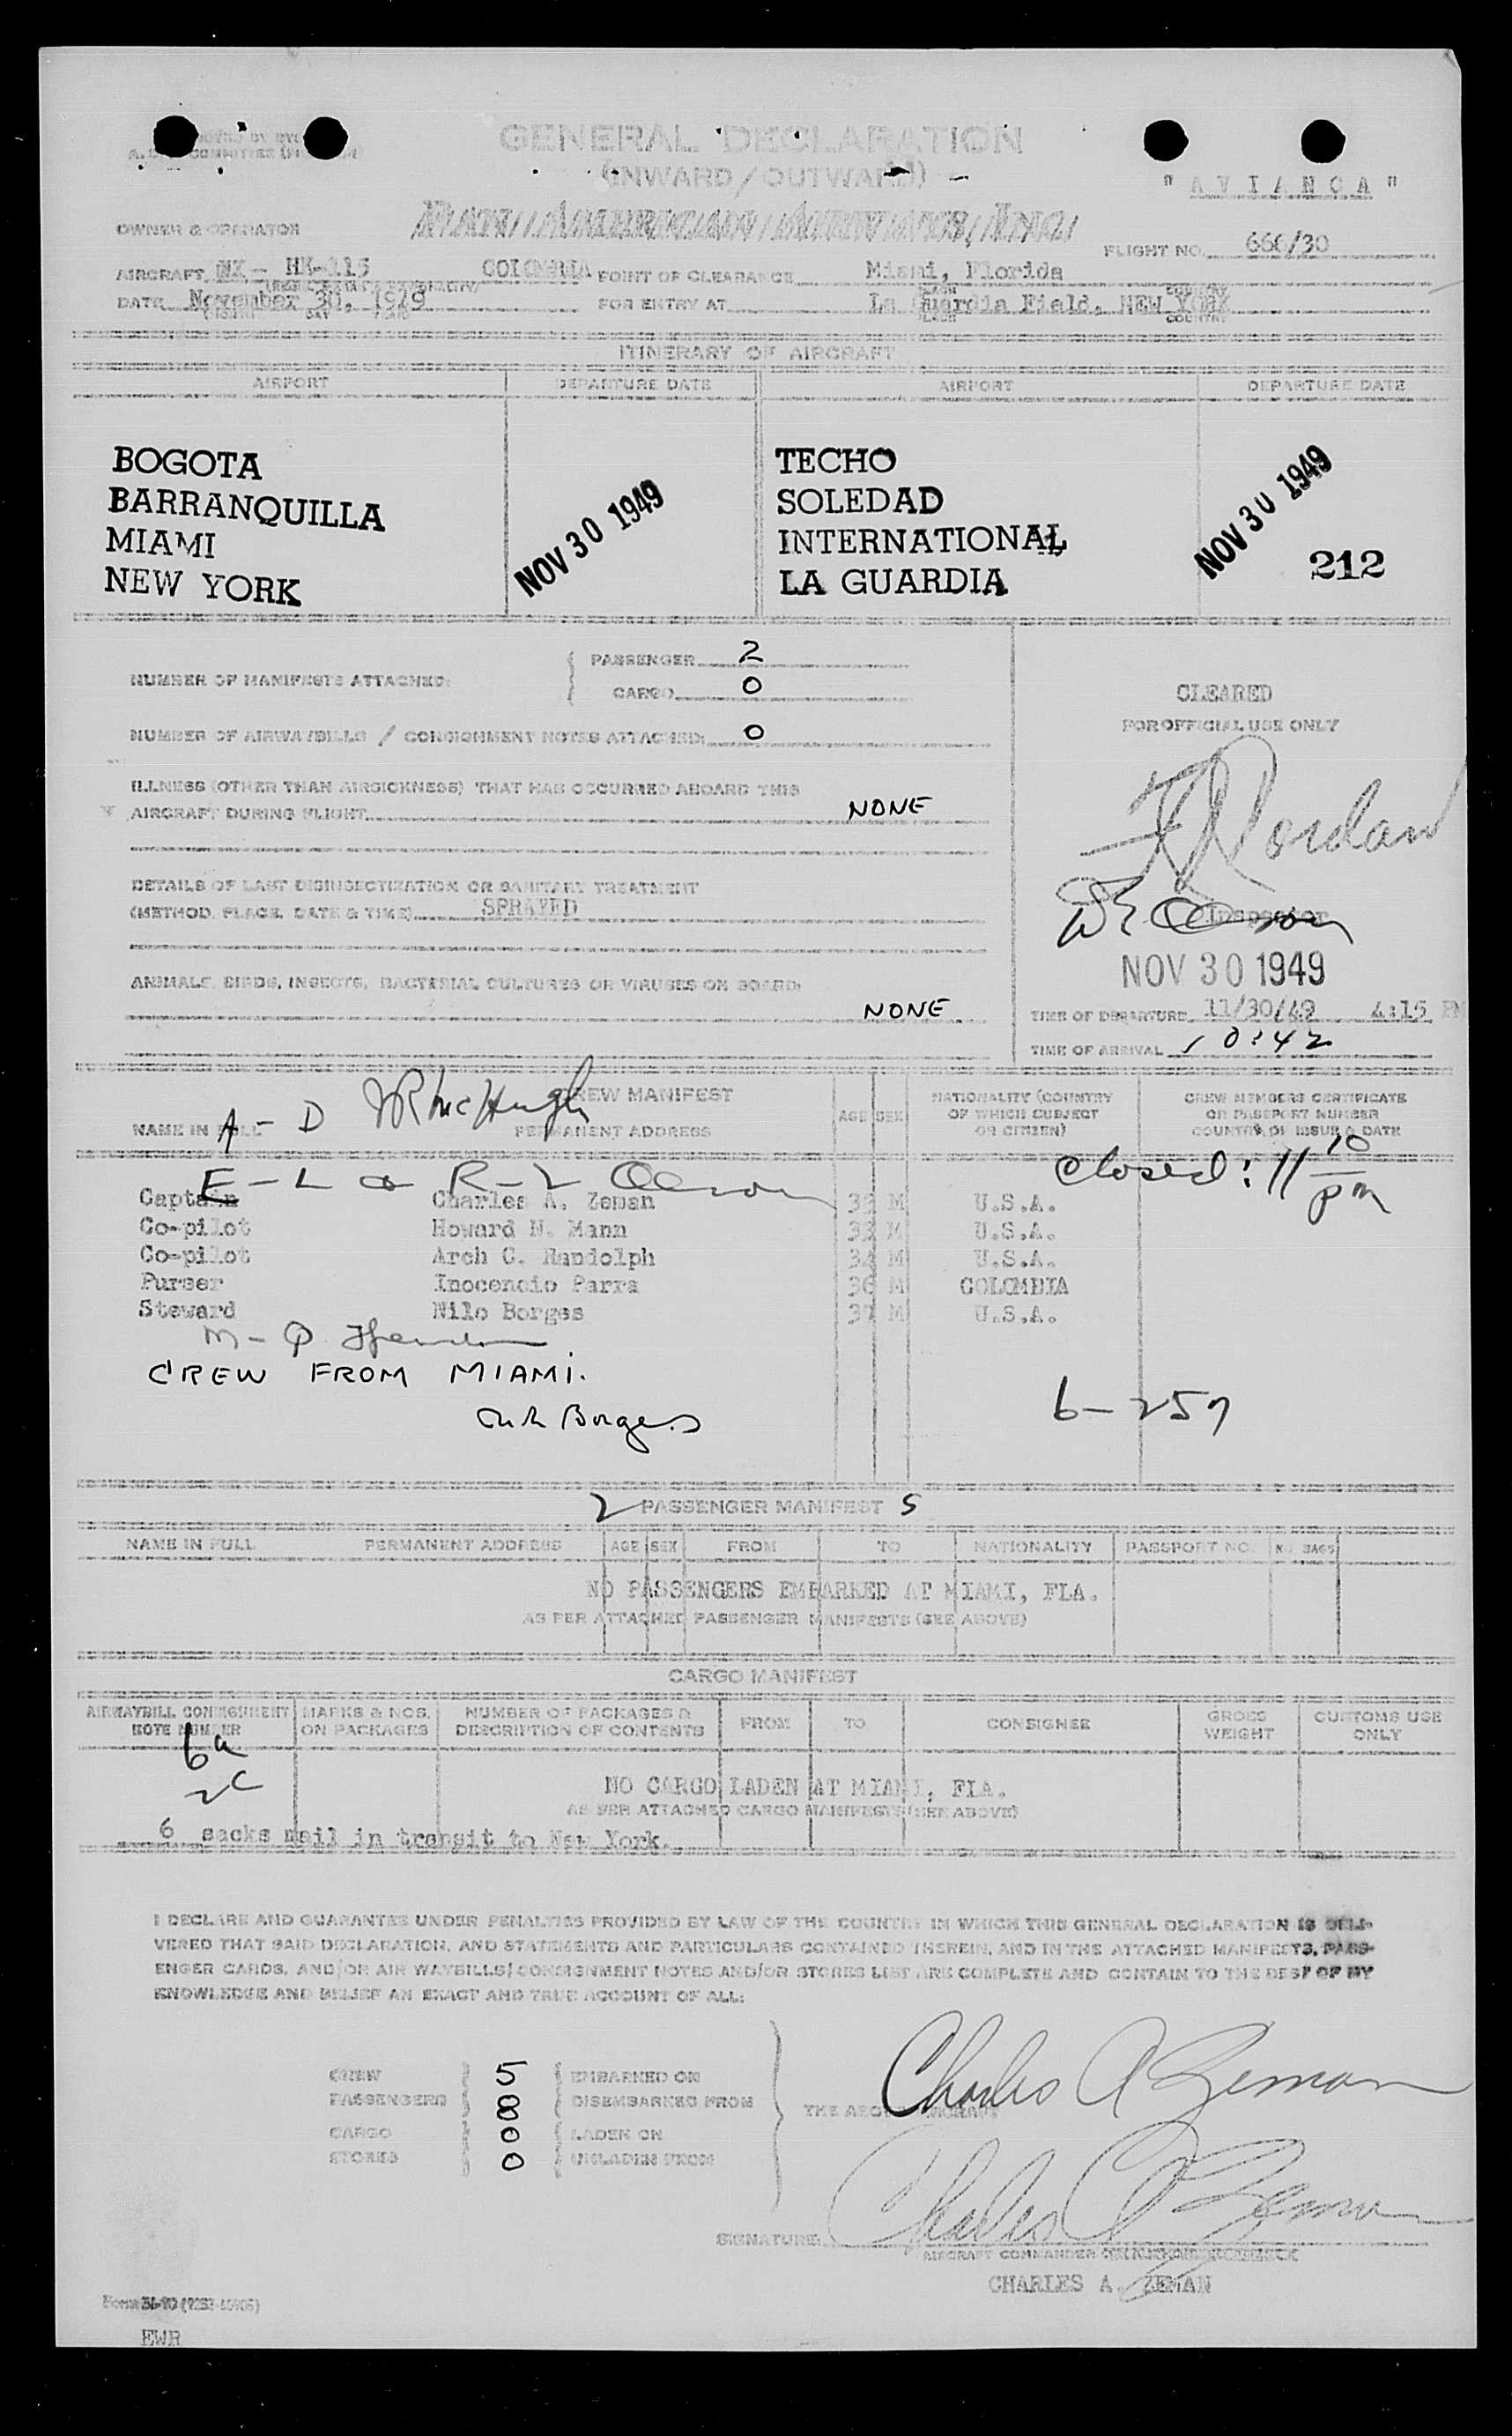 GENERAL DECLARATION
(INWARD / OUTWARD)
" A V I A N C A "
OWNER & OPERATOR PAN AMERICAN AIRWAYS, INC.
FLIGHT NO. 666/30
AIRCRAFT HK-115 COLOMBIA POINT OF CLEARANCE Miami, Florida
DATE November 30, 1949 FOR ENTRY AT La Guardia Field, NEW YORK
ITINERARY OF AIRCRAFT
AIRPORT DEPARTURE DATE AIRPORT DEPARTURE DATE
BOGOTA TECHO
BARRANQUILLA NOV 30 1949 SOLEDAD NOV 30 1949
MIAMI INTERNATIONAL 212
NEW YORK LA GUARDIA
NUMBER OF MANIFESTS ATTACHED: PASSENGER 2
CARGO 0
CLEARED
NUMBER OF AIRWAYBILLS / CONSIGNMENT NOTES ATTACHED: 0
FOR OFFICIAL USE ONLY
ILLNESS (OTHER THAN AIRSICKNESS) THAT HAS OCCURRED ABOARD THIS
AIRCRAFT DURING FLIGHT NONE
Jordan
DETAILS OF LAST DISINSECTIZATION OR SANITARY TREATMENT
(METHOD, PLACE, DATE & TIME) SPRAYED
Inspector
NOV 30 1949
ANIMALS, BIRDS, INSECTS, BACTERIAL CULTURES OR VIRUSES ON BOARD:
NONE
TIME OF DEPARTURE 11/30/49 4:15 PM
TIME OF ARRIVAL 10:42
CREW MANIFEST
A - D JR McHugh
NAME IN FULL PERMANENT ADDRESS AGE SEX NATIONALITY (COUNTRY OF WHICH SUBJECT OR CITIZEN) CREW MEMBERS CERTIFICATE OR PASSPORT NUMBER COUNTRY OF ISSUE & DATE
E - L R - L
Closed: 11 10 pm
Captain Charles A. Zeman M U.S.A.
Co-pilot Howard N. Mann 33 M U.S.A.
Co-pilot Arch C. Randolph 34 M U.S.A.
Purser Inocencio Parra 36 M COLOMBIA
Steward Nilo Borges 37 M U.S.A.
M - Q
CREW FROM MIAMI.
Borges
6 - 257
2 PASSENGER MANIFEST S
NAME IN FULL PERMANENT ADDRESS AGE SEX FROM TO NATIONALITY PASSPORT NO. NO. BAGS
NO PASSENGERS EMBARKED AT MIAMI, FLA.
AS PER ATTACHED PASSENGER MANIFESTS (SEE ABOVE)
CARGO MANIFEST
AIRWAYBILL CONSIGNMENT NOTE NUMBER MARKS & NOS. ON PACKAGES NUMBER OF PACKAGES & DESCRIPTION OF CONTENTS FROM TO CONSIGNEE GROSS WEIGHT CUSTOMS USE ONLY
6a
2c
NO CARGO LADEN AT MIAMI, FLA.
AS PER ATTACHED CARGO MANIFESTS (SEE ABOVE)
6 sacks mail in transit to New York.
I DECLARE AND GUARANTEE UNDER PENALTIES PROVIDED BY LAW OF THE COUNTRY IN WHICH THIS GENERAL DECLARATION IS DELI-
VERED THAT SAID DECLARATION, AND STATEMENTS AND PARTICULARS CONTAINED THEREIN, AND IN THE ATTACHED MANIFESTS, PASS-
ENGER CARDS, AND/OR AIR WAYBILLS/CONSIGNMENT NOTES AND/OR STORES LIST ARE COMPLETE AND CONTAIN TO THE BEST OF MY
KNOWLEDGE AND BELIEF AN EXACT AND TRUE ACCOUNT OF ALL:
CREW 5 EMBARKED ON
PASSENGERS 8 DISEMBARKED FROM
CARGO 0 LADEN ON
STORES 0 UNLADEN FROM
THE ABOVE Charles A Zeman
SIGNATURE: Charles A Zeman
AIRCRAFT COMMANDER
CHARLES A. ZEMAN
EWR